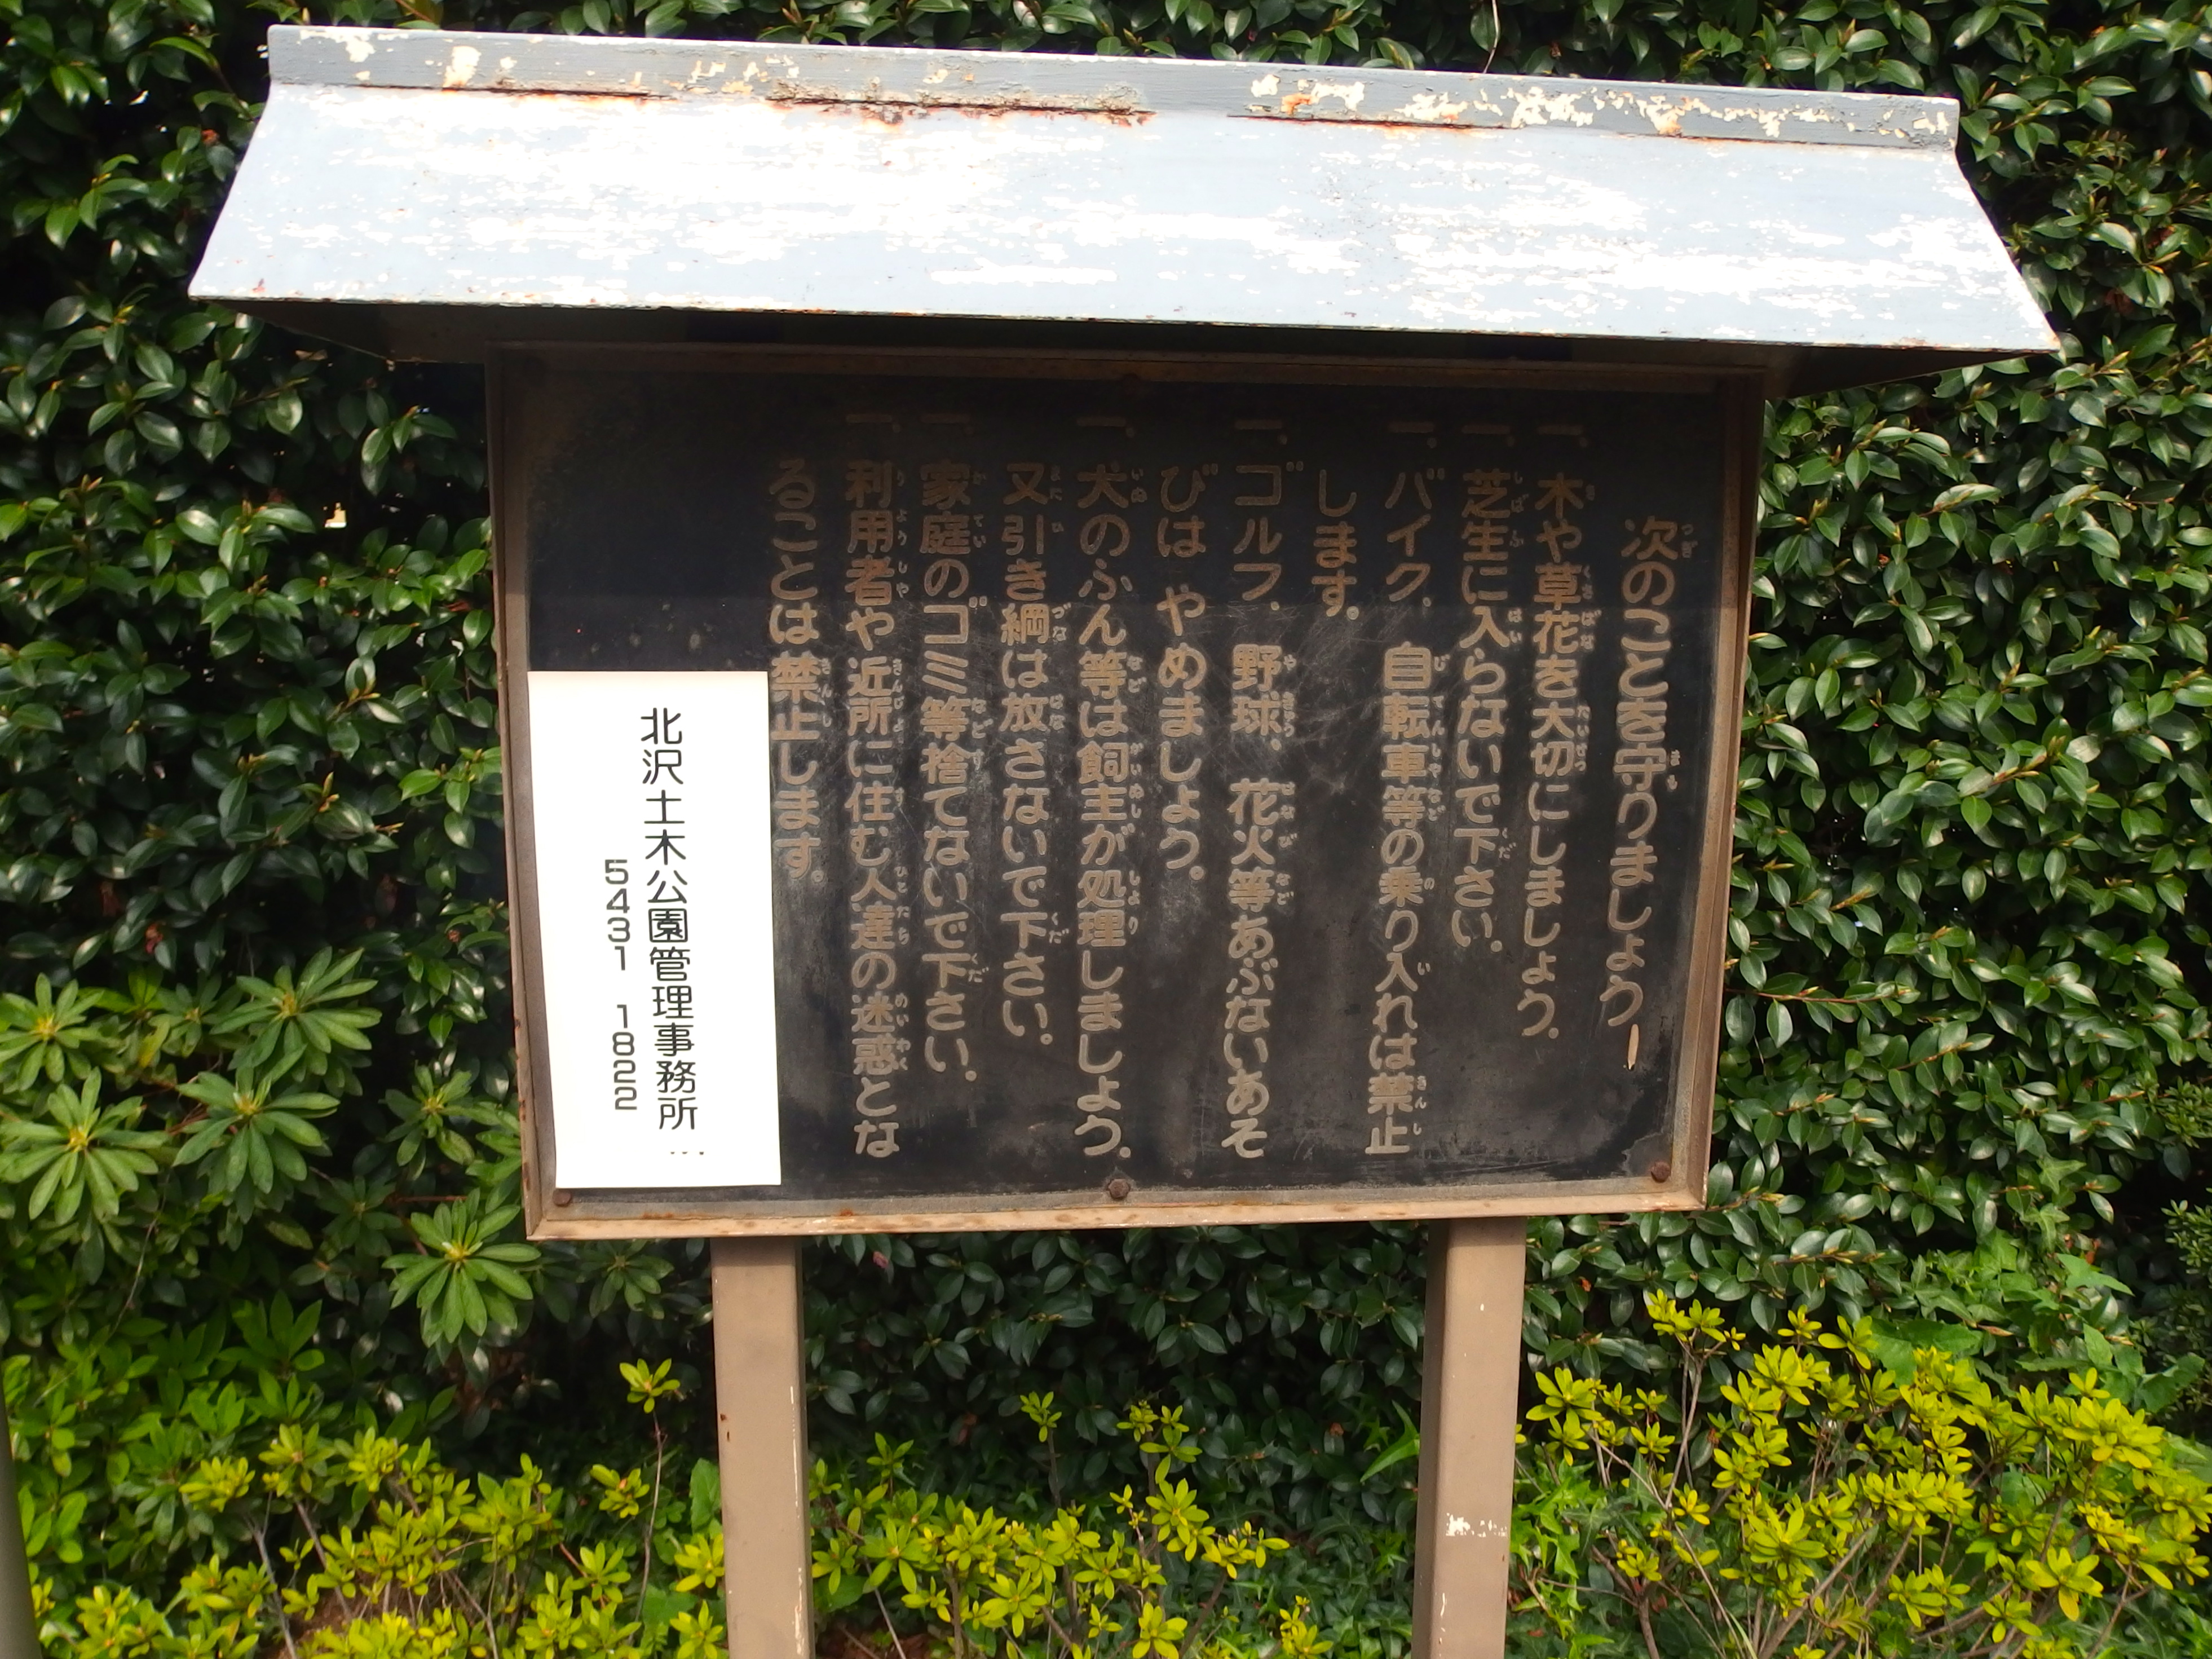 次のことを守りましょう
一、木や草花を大切にしましょう。
一、芝生に入らないで下さい。
一、バイク、自転車等の乗り入れは禁止
します。
一、ゴルフ、野球、花火等あぶないあそ
びは やめましょう。
一、犬のふん等は飼主が処理しましよう。
又引き綱は放さないで下さい。
一、家庭のゴミ等捨てないで下さい。
一、利用者や近所に住む人達の迷惑とな
ることは禁止します。
北沢土木公園管理事務所
5431 1822